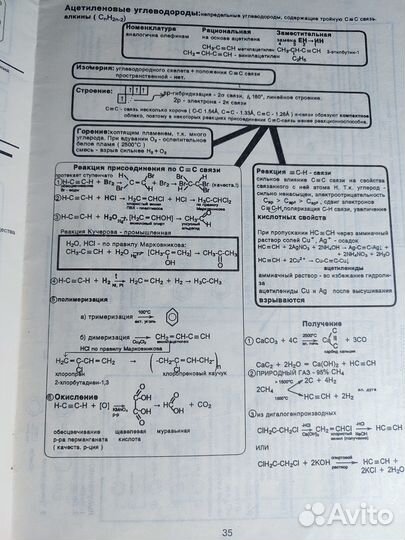 Ацетиленовые углеводороды: непредельные углеводороды, содержащие тройную C≡C связь.
алкины ( CₙH₂ₙ₋₂)
Номенклатура Рациональная Заместительная
аналогична олефинам на основе ацетилена замена ЕН→ИН
CH₃-C≡CH - метилацетилен CH₃-CH-C≡CH 3-этилбутин-1
CH₂=CH-C≡CH - винилацетилен C₂H₅
Изомерия: углеводородного скелета + положения C≡C связи
пространственной - нет.
Строение: sp-гибридизация - 2σ связи, ∠180°, линейное строение.
2p - электрона - 2π связи
C≡C - связь несколько короче ( C-C 1.54Å, C=C - 1.33Å, C≡C - 1.20Å) π-связи образуют компактное
облако, поэтому в некоторых реакциях присоединения C≡C-связь менее реакционноспособна.
Горение: коптящим пламенем, т.к. много
углерода. При вдувании O₂ - ослепительное
белое пламя ( 2500°C )
смесь - взрыв сильнее H₂ + O₂
Реакция присоединения по C≡C связи
протекает ступенчато
① H-C≡C-H + Br₂
Br - воды
(качеств.!)
② H-C≡C-H + HCl → H₂C=CHCl + HCl → H₃C-CHCl₂
ПВХ - пластмассы
③ H-C≡C-H + H₂O → [H₂C=CHOH] →
Реакция Кучерова - промышленная
H₂O, HCl - по правилу Марковникова:
CH₃-C≡CH + H₂O → [H₃C-C=CH₂] → CH₃-C-CH₃
OH O
④ H-C≡C-H + H₂ → H₂C=CH₂ + H₂ → H₃C-CH₃
⑤ полимеризация
а) тримеризация 100°C
акт. уголь
б) димеризация CH₂=CH-C≡CH
HCl по правилу Марковникова
H₂C=C-CH=CH₂ → (-CH₂-C=CH-CH₂-)n
хлоропрен хлоропреновый каучук
2-хлорбутадиен-1,3
⑥ Окисление
H-C≡C-H + [O] → + CO₂
KMnO₄
обесцвечивание щавелевая муравьиная
р-ра перманганата кислота
( качеств. р-ция )
Реакция ≡C-H - связи
сильное влияние C≡C связи на свойства
связанного с ней атома Н. Т.к. углерод -
сильно ненасыщен, электроотрицательность
сдвиг электронов
поляризация С-Н связи, увеличение
кислотных свойств
При пропускании HC≡CH через аммиачный
раствор солей Cu⁺, Ag⁺ - осадок
HC≡CH + 2AgNO₃ + 2NH₄OH → Ag-C≡C-Ag↓ +
HC≡CH + 2Cu²⁺ → Cu-C≡C-Cu↓
ацетилениды
аммиачный раствор - во избежание гидроли-
за
ацетилениды Cu и Ag после высушивания
взрываются
Получение
① CaCO₃ + 4C 2500°C + 3CO
карбид кальция
CaC₂ + 2H₂O → Ca(OH)₂ + HC≡CH
② ПРИРОДНЫЙ ГАЗ - 95% CH₄
2CH₄ > 1500°C 2C + 4H₂
1500°C HC≡CH + 3H₂
③ из дигалогенпроизводных
ClH₂C-CH₂Cl → CH₂=CHCl → HC≡CH
ИЛИ
ClH₂C-CH₂Cl + 2KOH спиртовой HC≡CH +
раствор + 2KCl + 2H₂O
35
Avito